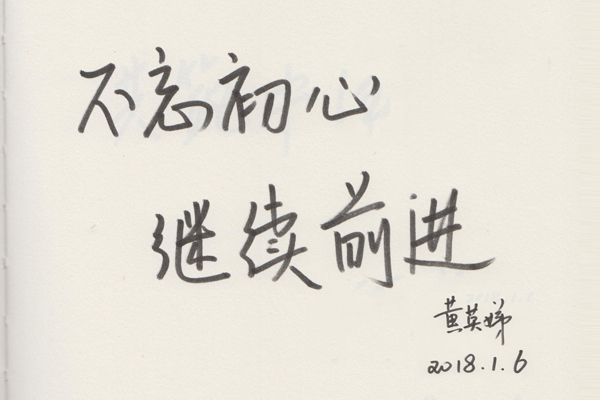 不忘初心
继续前进
黄英娣
2018.1.6